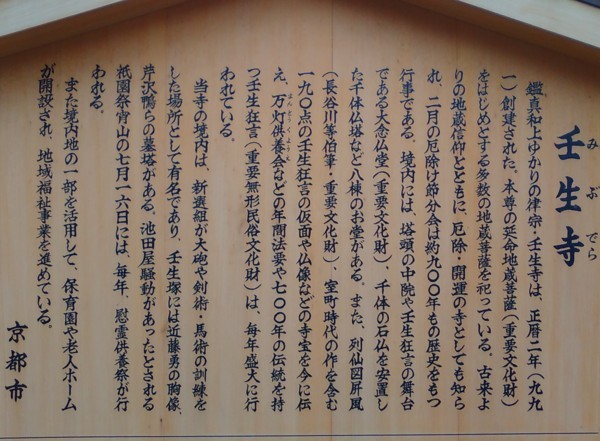 壬生寺
みぶでら
鑑真和上ゆかりの律宗・壬生寺は、正暦二年（九九
一）創建された。本尊の延命地蔵菩薩（重要文化財）
をはじめとする多数の地蔵菩薩を祀っている。古来よ
りの地蔵信仰とともに、厄除・開運の寺としても知ら
れ、二月の厄除け節分会は約九〇〇年もの歴史をもつ
行事である。境内には、塔頭の中院や壬生狂言の舞台
である大念仏堂（重要文化財）、千体の石仏を安置し
た千体仏塔など八棟のお堂がある。また、列仙図屏風
（長谷川等伯筆・重要文化財）、室町時代の作を含む
一九〇点の壬生狂言の仮面や仏像などの寺宝を今に伝
え、万灯供養会などの年間法要や七〇〇年の伝統を持
まんとうくようえ
つ壬生狂言（重要無形民俗文化財）は、毎年盛大に行
われている。
当寺の境内は、新選組が大砲や剣術・馬術の訓練を
した場所として有名であり、壬生塚には近藤勇の胸像、
芹沢鴨らの墓塔がある。池田屋騒動があったとされる
祇園祭宵山の七月一六日には、毎年、慰霊供養祭が行
われる。
また境内地の一部を活用して、保育園や老人ホーム
が開設され、地域福祉事業を進めている。
京都市